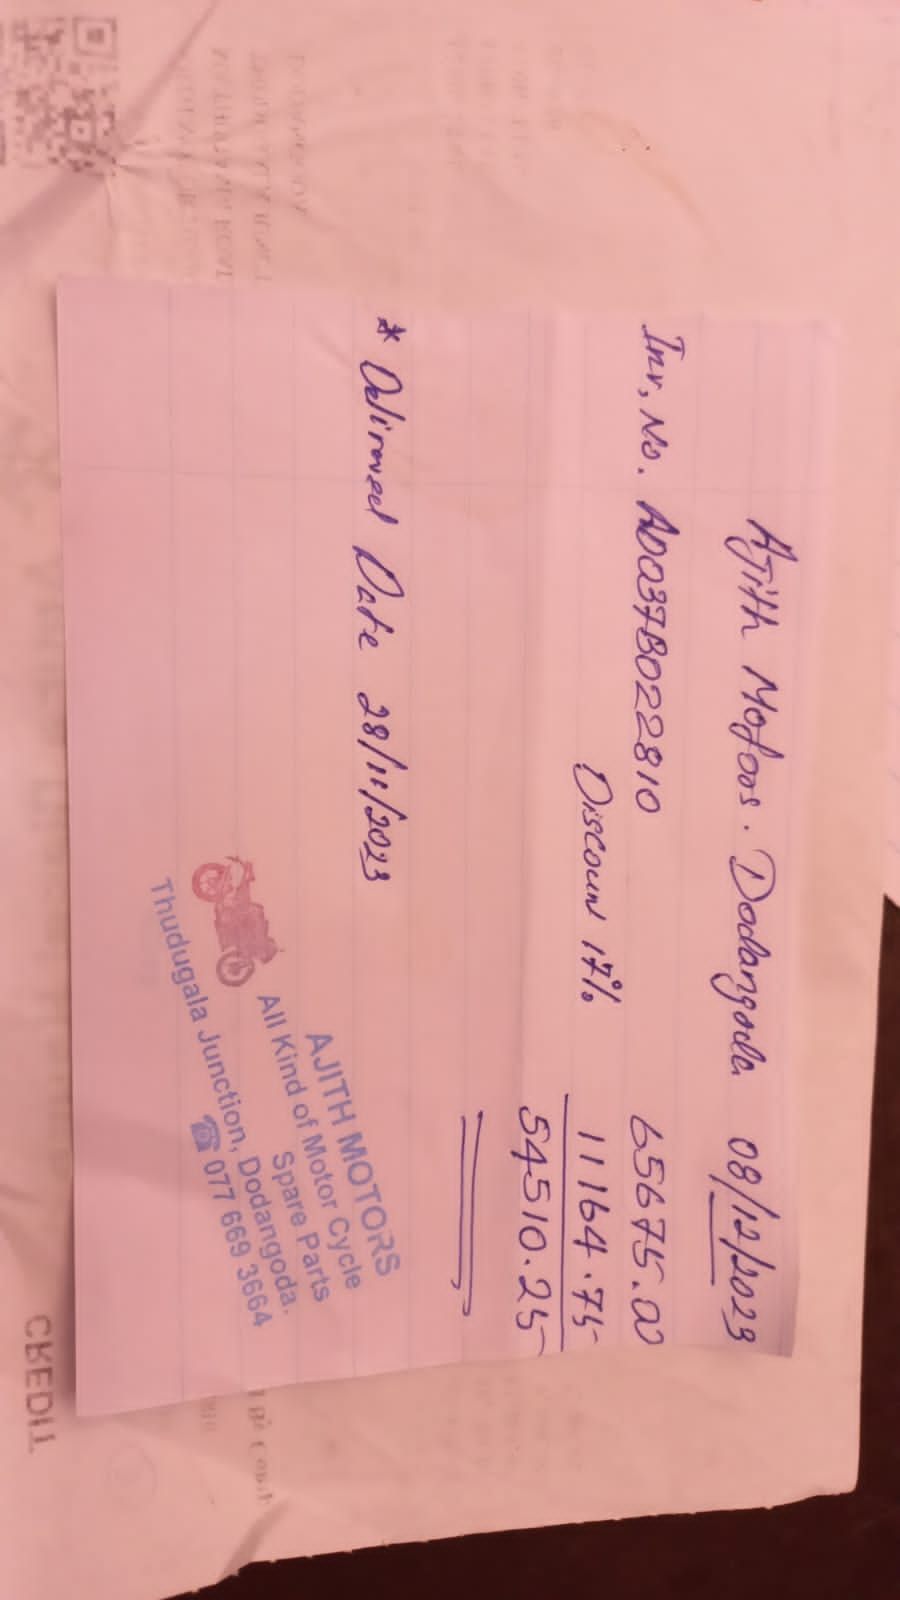 Ajith Motors. Dodangoda. 08/12/2023
Inv, No. AD037B022810 65675.00
Discoun 17% 11164.75
54510.25
* Delivered Date 28/11/2023
AJITH MOTORS
All Kind of Motor Cycle
Spare Parts
Thudugala Junction, Dodangoda.
☎ 077 669 3664
CREDIT